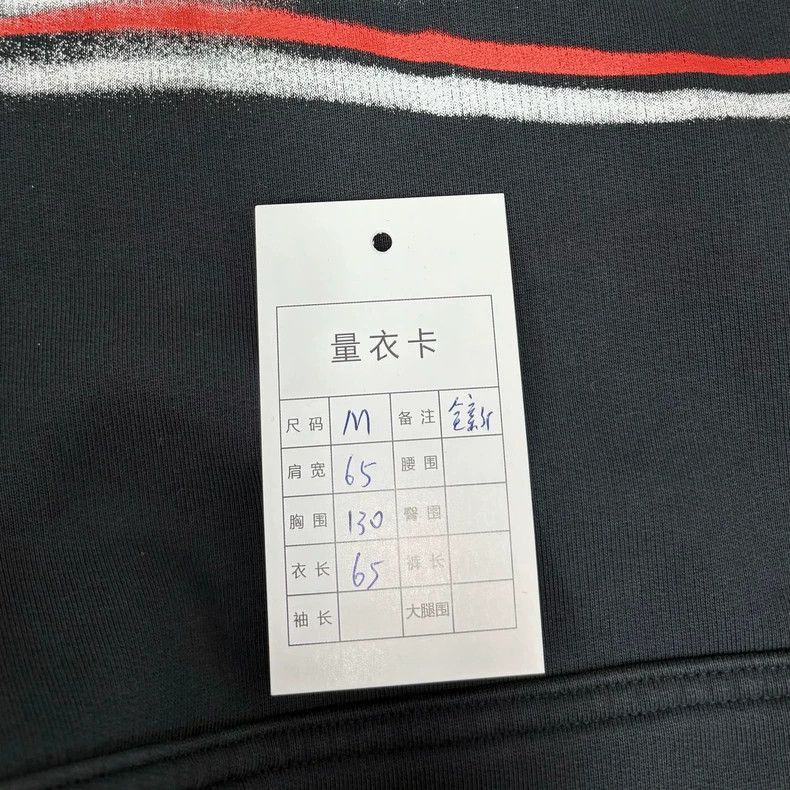 量衣卡
尺码 M 备注 全新
肩宽 65 腰围
胸围 130 臀围
衣长 65 裤长
袖长 大腿围